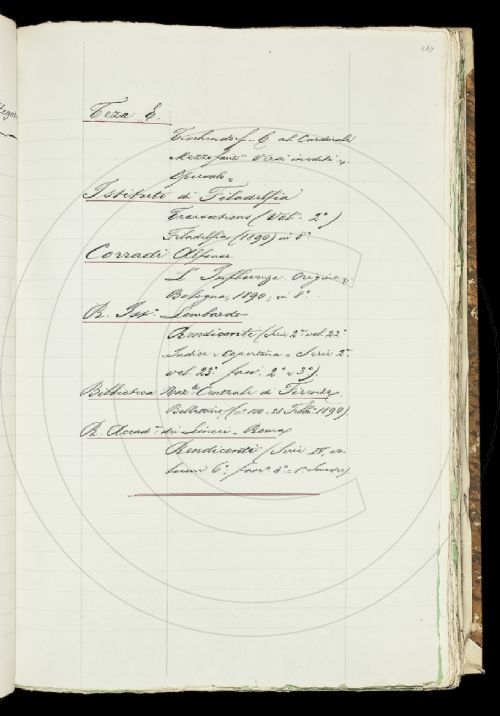 Teza E.
Tischendorf C. al Cardinale
Mezzofanti. Versi inediti.
Opuscolo.
Istituto di Filadelfia
Transactions (Vol. 2°)
Filadelfia (1890) in 8°.
Corradi Alfonso
L'Influenza. Origine
Bologna, 1890, in 8°.
R. Ist° Lombardo
Rendiconti (Serie 2ª vol. 22°
Indice e Copertina = Serie 2ª
vol. 23° fasc. 2° e 3°).
Biblioteca Naz.le Centrale di Firenze
Bollettino (n° 100 - 28 Febb° 1890)
R. Accad.ª dei Lincei - Roma
Rendiconti (Serie IV, vo-
lume 6° fasc° 4° = 1° Semestre)